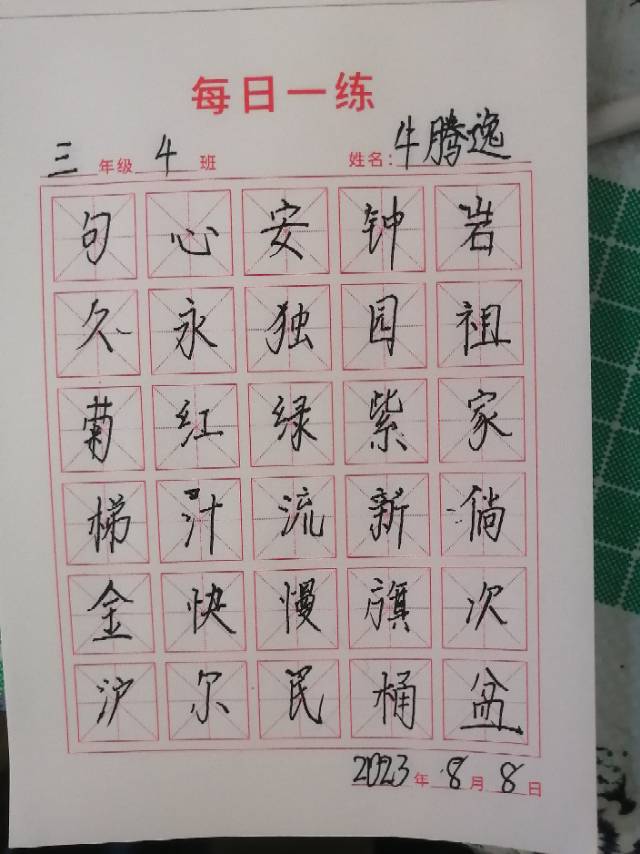 每日一练
三年级 4班 姓名:牛腾逸
句心安钟岩
久永独园祖
菊红绿紫家
梯汁流新倘
金快慢旗次
沪尔民桶盆
2023年8月8日